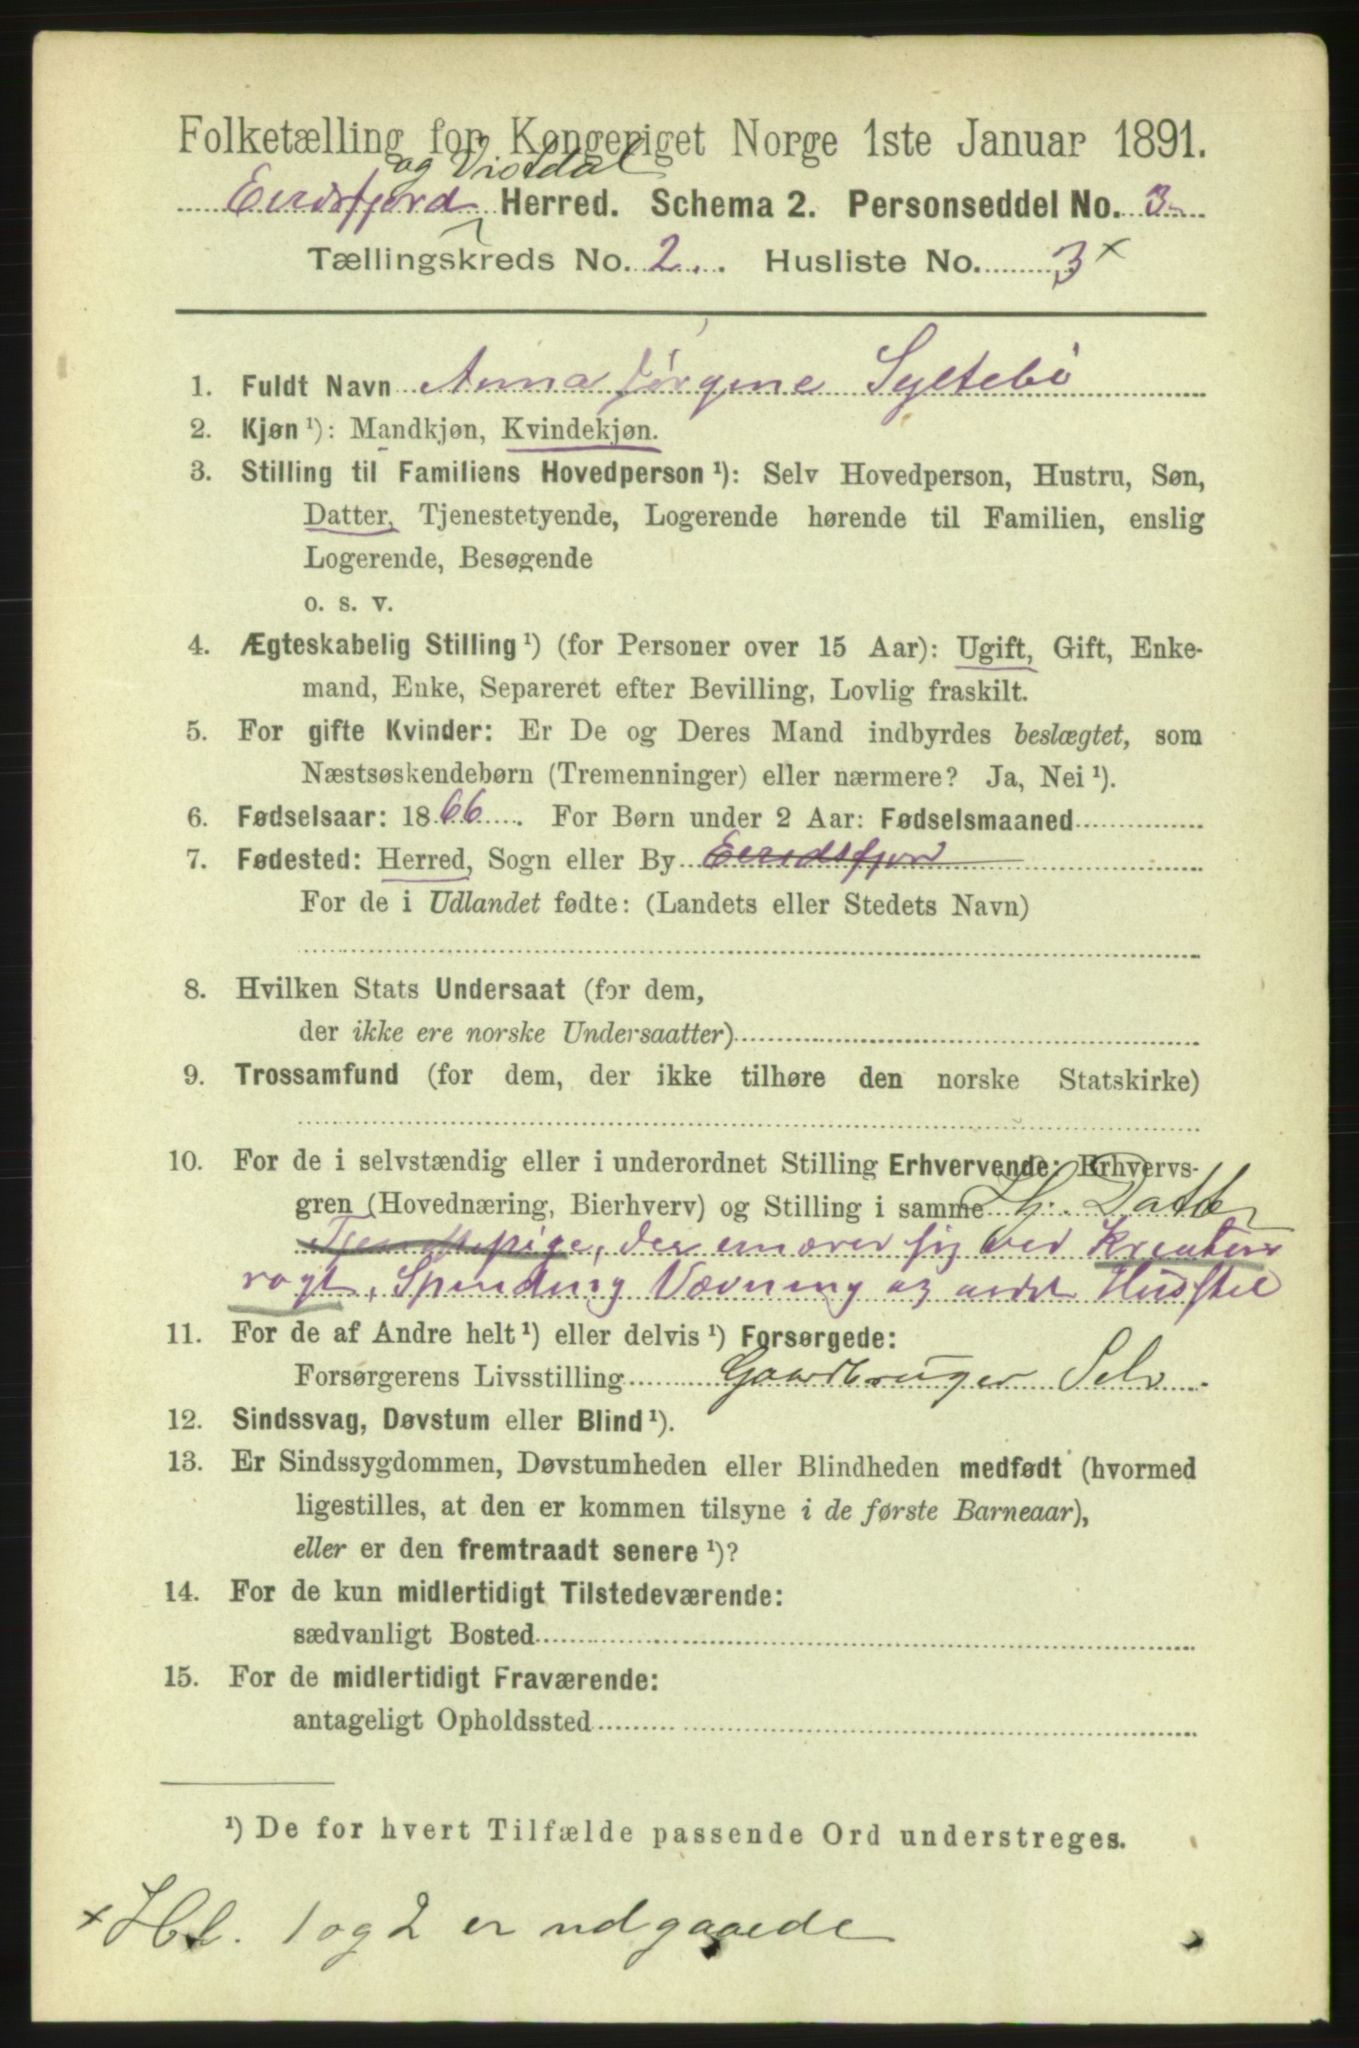 Folketælling for Kongeriget Norge 1ste Januar 1891.
og Vistdal
Eirdsfjord Herred. Schema 2. Personseddel No. 3
Tællingskreds No. 2. Husliste No. 3 x
1. Fuldt Navn Anna Jørgine Syltebø
2. Kjøn ¹): Mandkjøn, Kvindekjøn.
3. Stilling til Familiens Hovedperson ¹): Selv Hovedperson, Hustru, Søn,
Datter, Tjenestetyende, Logerende hørende til Familien, enslig
Logerende, Besøgende
o. s. v.
4. Ægteskabelig Stilling ¹) (for Personer over 15 Aar): Ugift, Gift, Enke-
mand, Enke, Separeret efter Bevilling, Lovlig fraskilt.
5. For gifte Kvinder: Er De og Deres Mand indbyrdes beslægtet, som
Næstsøskendebørn (Tremenninger) eller nærmere? Ja, Nei ¹).
6. Fødselsaar: 1866. For Børn under 2 Aar: Fødselsmaaned
7. Fødested: Herred, Sogn eller By Eirdsfjord
For de i Udlandet fødte: (Landets eller Stedets Navn)
8. Hvilken Stats Undersaat (for dem,
der ikke ere norske Undersaatter)
9. Trossamfund (for dem, der ikke tilhøre den norske Statskirke)
10. For de i selvstændig eller i underordnet Stilling Erhvervende: Erhvervs-
gren (Hovednæring, Bierhverv) og Stilling i samme Lh. Datter
Tjenestepige, der ernærer sig ved Kreatur
røgt, Spinding Vævning og andet Husstel
11. For de af Andre helt ¹) eller delvis ¹) Forsørgede:
Forsørgerens Livsstilling Gaardbruger Selv
12. Sindssvag, Døvstum eller Blind ¹).
13. Er Sindssygdommen, Døvstumheden eller Blindheden medfødt (hvormed
ligestilles, at den er kommen tilsyne i de første Barneaar),
eller er den fremtraadt senere ¹)?
14. For de kun midlertidigt Tilstedeværende:
sædvanligt Bosted
15. For de midlertidigt Fraværende:
antageligt Opholdssted
¹) De for hvert Tilfælde passende Ord understreges.
x Hl. 1 og 2 er udgaaede